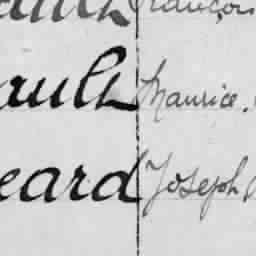 ault François
ault Maurice.
eard Joseph